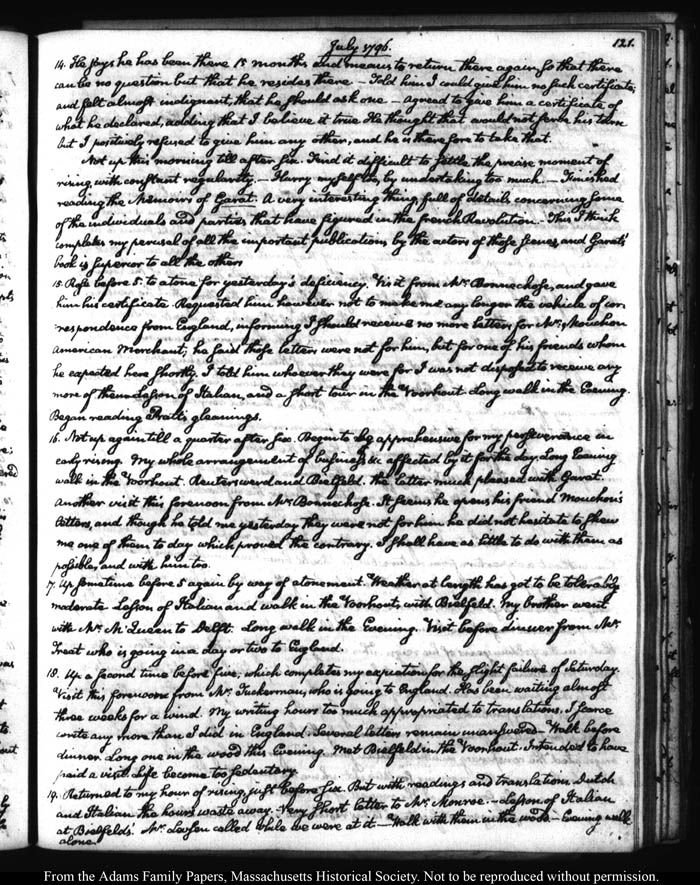 July 1796.
121.
14. He says he has been there 15 months and means to return there again so that there
can be no question but that he resides there — Told him I could give him no such certificate,
and felt almost indignant, that he should ask one — agreed to give him a certificate of
what he declared, adding that I believe it true He thought that would not serve his turn
but I positively refused to give him any other, and he is therefore to take that.
Not up this morning till after six. Find it difficult to settle the precise moment of
rising with constant regularity. — Hurry myself too, by undertaking too much. — Finished
reading the Memoirs of Garat. A very interesting thing, full of details concerning some
of the individuals and parties that have figured in the french Revolution. This I think
completes my perusal of all the important publications by the actors of those scenes, and Garat's
book is superior to all the others
15. Rose before 5. to atone for yesterday's deficiency. Visit from Mr. Bonnechose, and gave
him his certificate. Requested him however not to make me any longer the vehicle of cor-
respondence from England, informing I should receive no more letters for Mr. Mouchon
American Merchant; he said those letters were not for him, but for one of his friends whom
he expected here shortly. I told him whoever they were for I was not disposed to receive any
more of them. Lesson of Italian, and a short tour in the Voorhout. Long walk in the Evening.
Began reading Pratt's gleanings.
16. Not up again till a quarter after six. Begin to be apprehensive for my perseverance in
early rising. My whole arrangement of business &c affected by it for the day. Long Evening
walk in the Voorhout. Reutersverd and Bielfeld. the latter much pleased with Garat.
Another visit this forenoon from Mr. Bonnechose. It seems he opens his friend Mouchon's
letters, and though he told me yesterday they were not for him he did not hesitate to shew
me one of them to day which proved the contrary. I shall have as little to do with them as
possible, and with him too.
17. Up sometime before 5 again by way of atonement. Weather at length has got to be tolerably
moderate Lesson of Italian and walk in the Voorhout, with Bielfeld. My brother went
with Mr. McQueen to Delft. Long walk in the Evening. Visit before dinner from Mr.
Treat who is going in a day or two to England.
18. Up a second time before five, which completes my expiation for the slight failure of Saturday.
Visit this forenoon from Mr. Tuckerman, who is going to England. Has been waiting almost
three weeks for a wind. My writing hours too much appropriated to translations. I scarce
write any more than I did in England. Several letters remain unanswered — Walk before
dinner. Long one in the wood this Evening. Met Bielfeld in the Voorhout. Intended to have
paid a visit. Life become too sedentary.
19. Returned to my hour of rising, just before six. But with readings and translations Dutch
and Italian the hours waste away. Very short letter to Mr. Monroe. — Lesson of Italian
at Bielfelds'. Mr. called while we were at it — Walk with them in the wood. — Evening walk
alone.
From the Adams Family Papers, Massachusetts Historical Society. Not to be reproduced without permission.